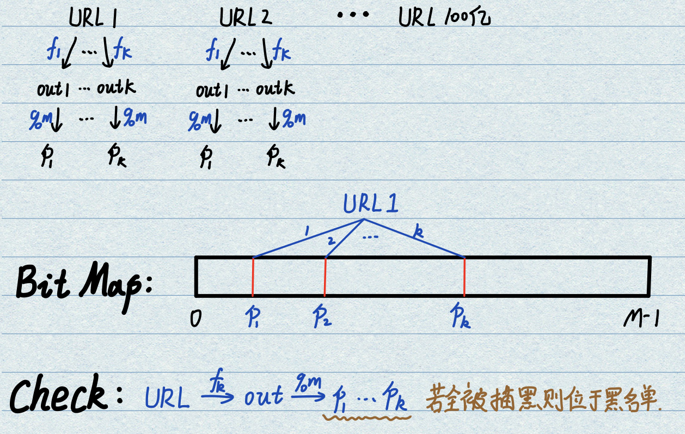 URL 1 URL 2 ... URL 100亿
f₁ ... fₖ f₁ ... fₖ
out1 ... outk out1 ... outk
%m ... %m %m ... %m
P₁ Pₖ P₁ Pₖ
URL 1
1 2 ... k
Bit Map:
0 P₁ P₂ Pₖ M-1
Check: URL fₖ→ out %m→ P₁ ... Pₖ 若全被描黑则位于黑名单.